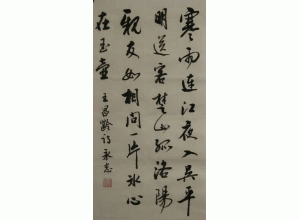 寒雨连江夜入吴平
明送客楚山孤洛陽
親友如相问一片氷心
在玉壺
王昌龄诗永志